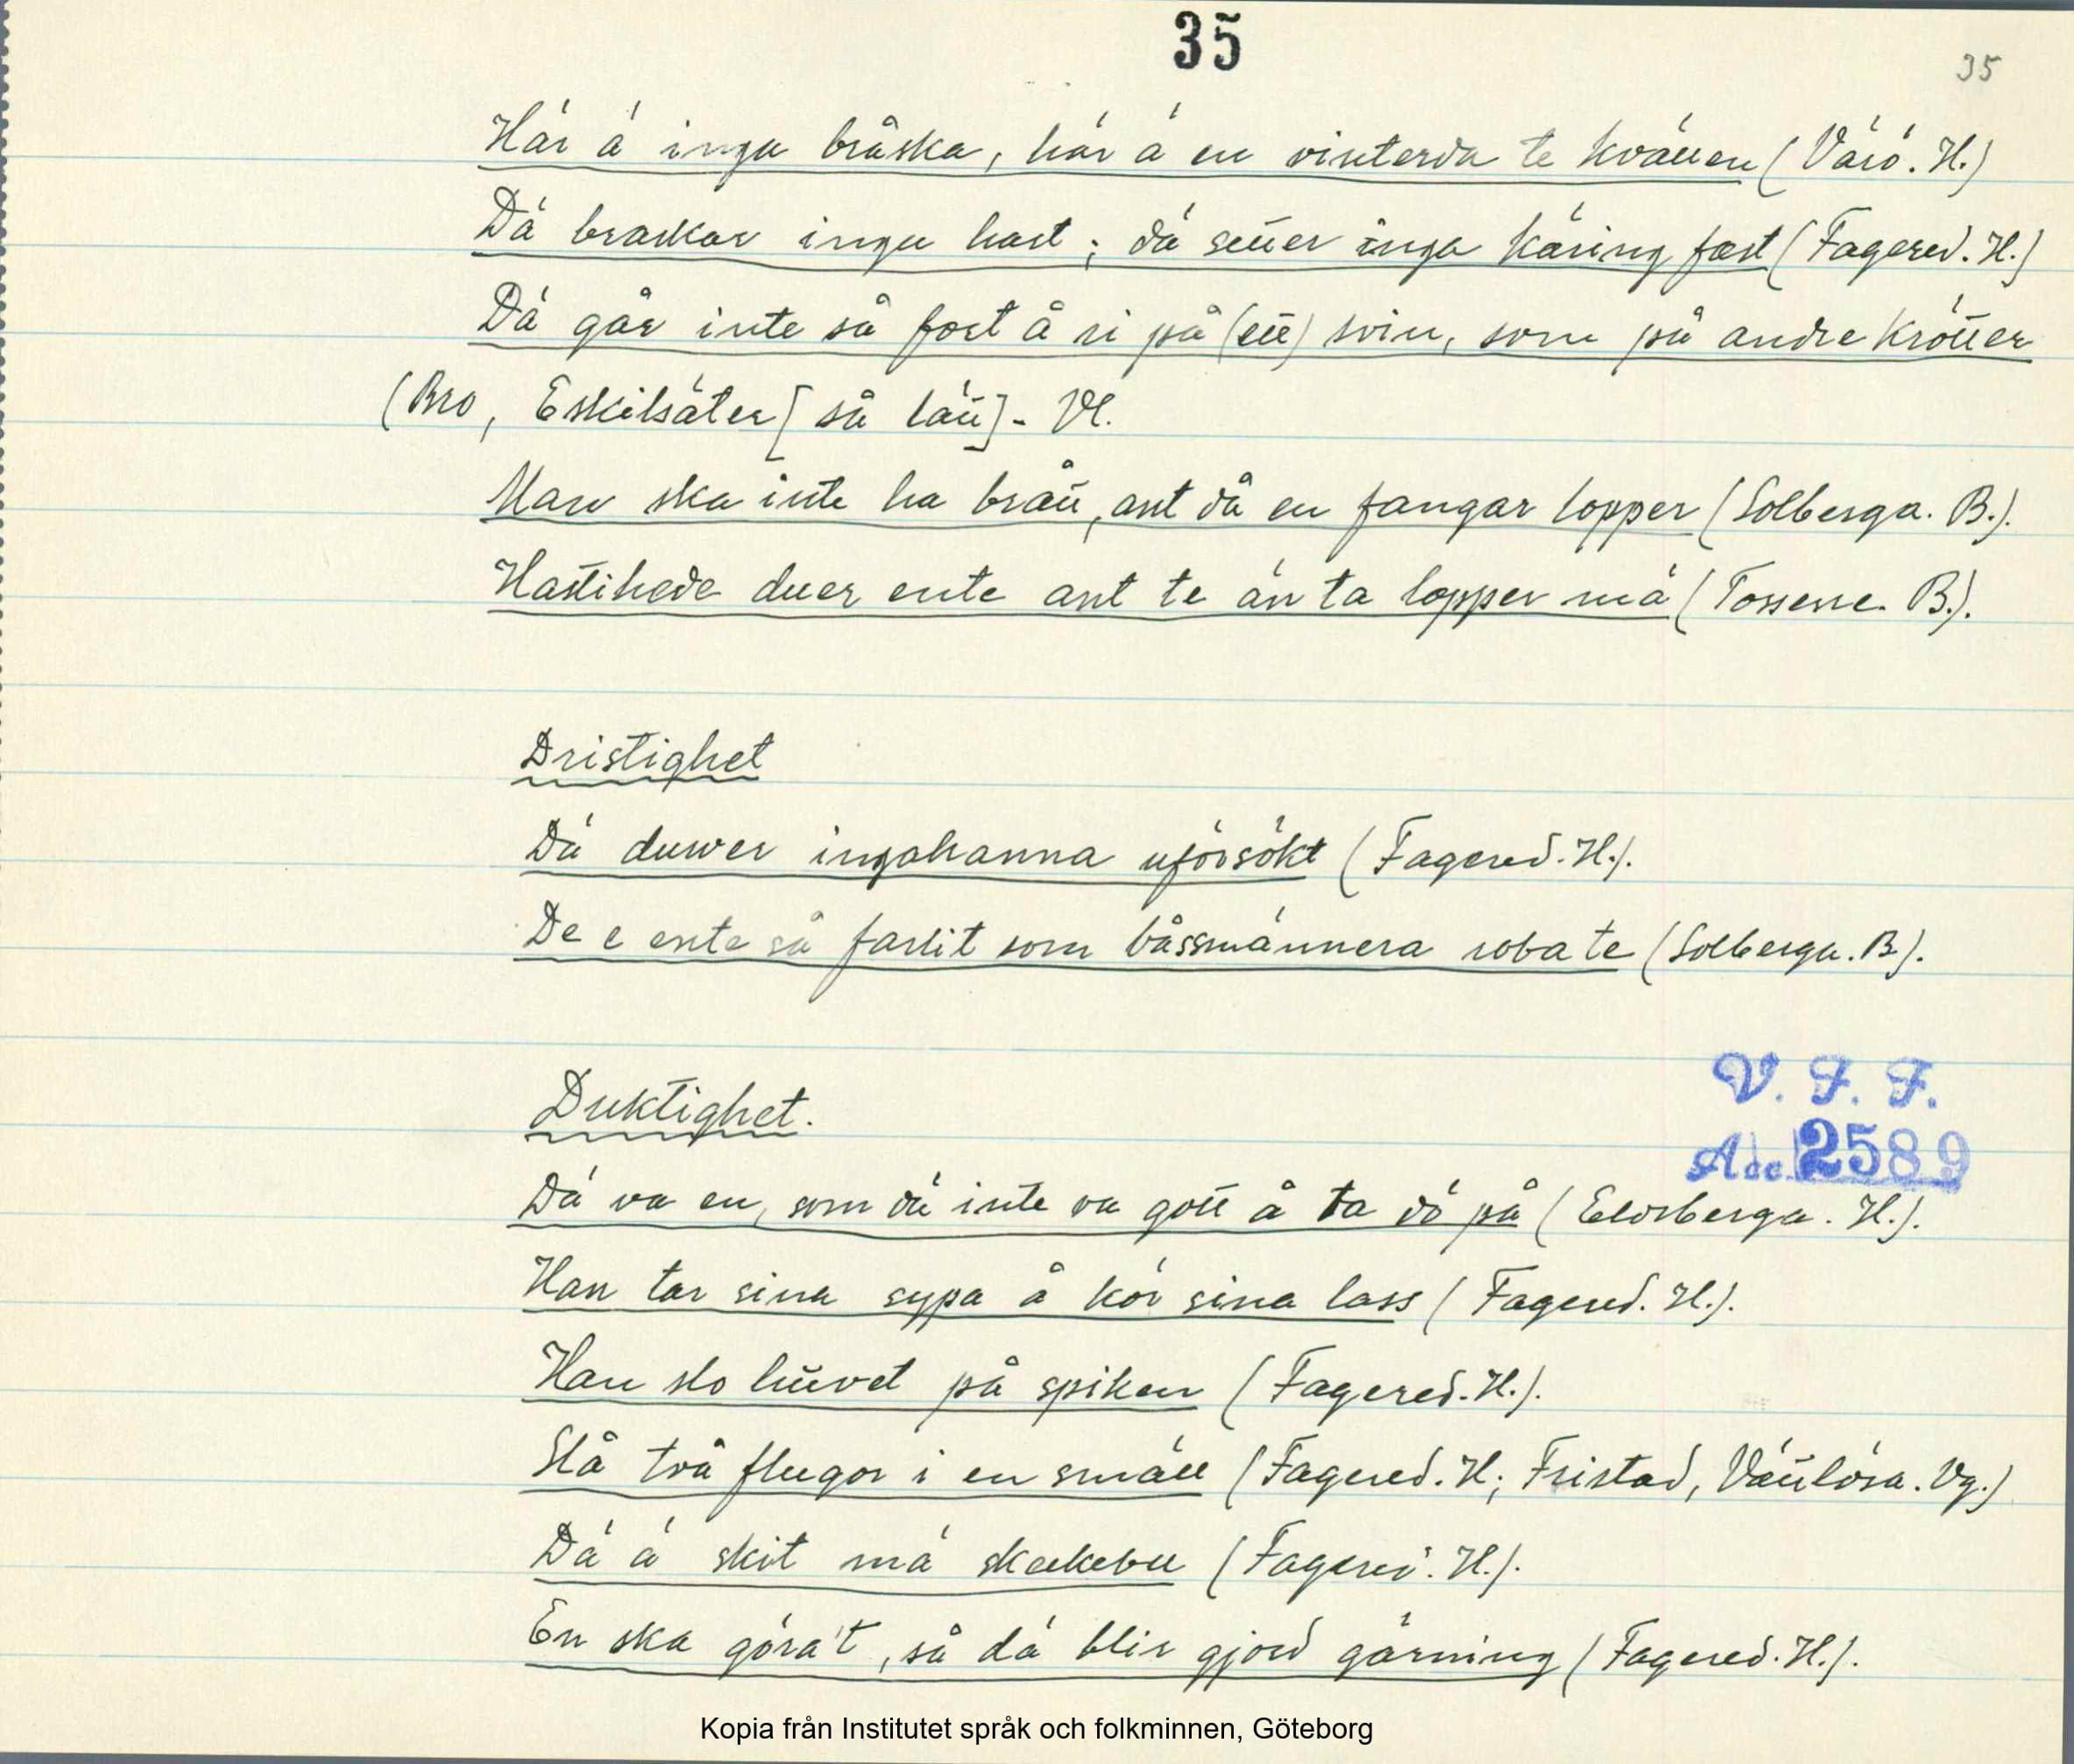 35
35
Här ä inga bråska, här ä en vinterda te kvällen (Värö. H.)
Dä braskar ingu hast; dä sitter inga käring fast (Fagered. H.)
Dä går inte så fort å ri på (ett) svin, som på andre krötter
(Bro, Eskilsäter [så lätt] - Vl.
Man ska inte ha brått, ant då en fangar lopper (Solberga. B.).
Hastihede duer ente ant te än ta lopper mä (Tossene. B.).
Dristighet
Dä duwer ingahanna uförsökt (Fagered. H.).
De e ente så farlit som båssmännera roba te (Solberga. B).
Duktighet.
V. F. F.
Acc. 2589
Dä va en, som dä inte va gott å ta dö på (Eldsberga. H.).
Han tar sina sypa å kör sina lass (Fagered. H.).
Han slo huvvet på spiken (Fagered. H.).
Slå två flugor i en smäll (Fagered. H; Fristad, Vättlösa. Vg.)
Dä ä skit mä (Fagered. H.).
En ska göra't, så dä blir gjord gärning (Fagered. H.).
Kopia från Institutet språk och folkminnen, Göteborg